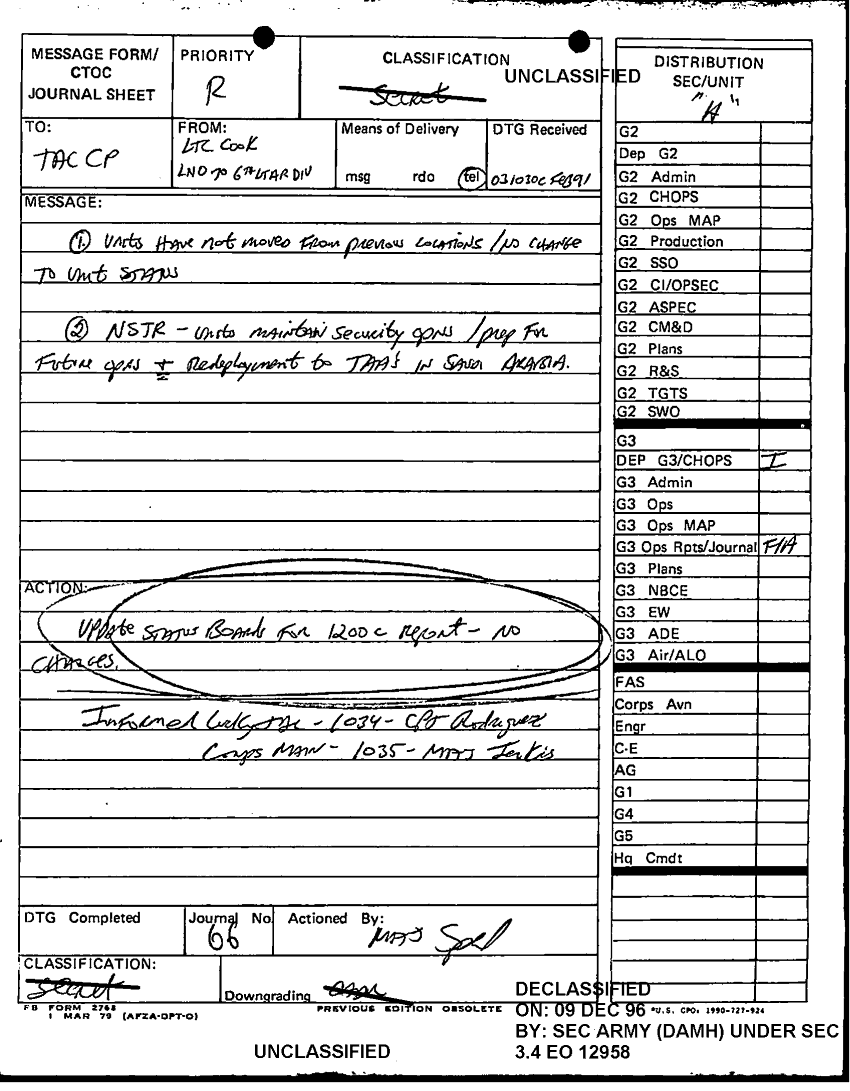 MESSAGE FORM/
CTOC
JOURNAL SHEET
PRIORITY
R
CLASSIFICATION
Secret
UNCLASSIFIED
TO:
TAC CP
FROM:
LTC Cook
LNO TO 6th LTAR DIV
Means of Delivery
msg rdo tel
DTG Received
031030C Feb91
MESSAGE:
① Units Have not moved From previous Locations / NO CHANGE
TO Unit STATUS
② NSTR - Units MAINTAIN Security opns / prep For
Future opns + Redeployment to TAA's IN SAUDI ARABIA.
ACTION:
UPDate STATUS BOARDS FOR 1200C Report - NO
CHANGES.
Informed - 1034 - CPT Rodriguez
Corps MAIN - 1035 - MAJ
DTG Completed
Journal No
66
Actioned By:
MAJ
CLASSIFICATION:
Secret
Downgrading
FB FORM 2768
1 MAR 79 (AFZA-DPT-O)
PREVIOUS EDITION OBSOLETE
*U.S. GPO: 1990-727-924
DISTRIBUTION
SEC/UNIT
"A"
G2
Dep G2
G2 Admin
G2 CHOPS
G2 Ops MAP
G2 Production
G2 SSO
G2 CI/OPSEC
G2 ASPEC
G2 CM&D
G2 Plans
G2 R&S
G2 TGTS
G2 SWO
G3
DEP G3/CHOPS I
G3 Admin
G3 Ops
G3 Ops MAP
G3 Ops Rpts/Journal F/A
G3 Plans
G3 NBCE
G3 EW
G3 ADE
G3 Air/ALO
FAS
Corps Avn
Engr
C-E
AG
G1
G4
G5
Hq Cmdt
DECLASSIFIED
ON: 09 DEC 96
BY: SEC ARMY (DAMH) UNDER SEC
3.4 EO 12958
UNCLASSIFIED